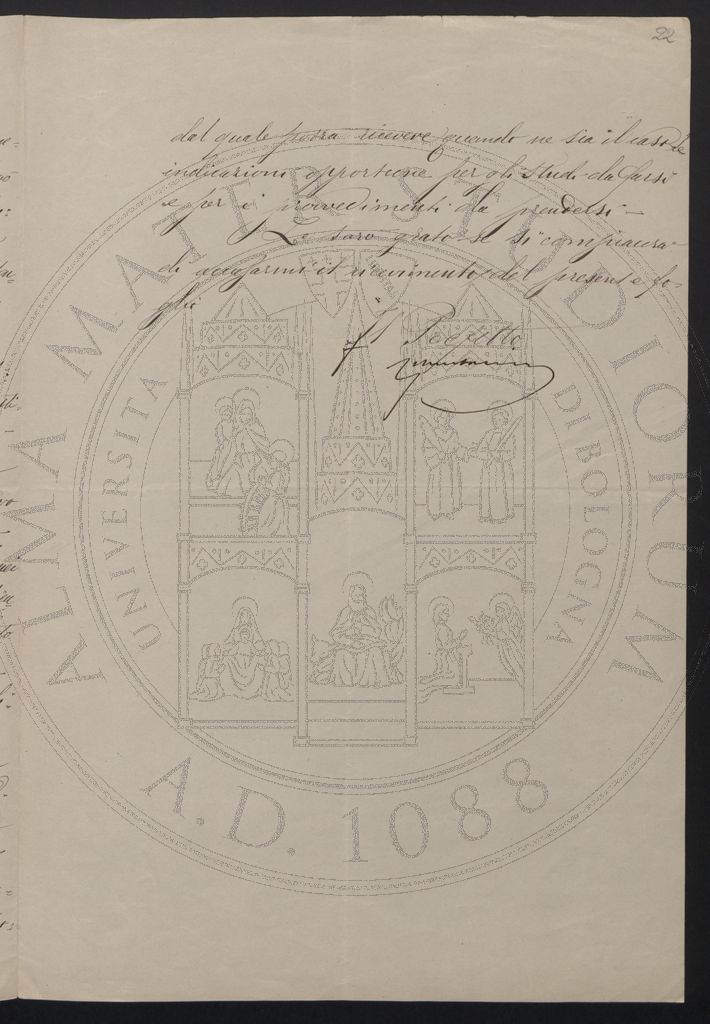 22
dal quale potrà ricevere quando ne sia il caso le
indicazioni opportune per gli studi da farsi
e per i provvedimenti da prendersi —
Le sarò grato se si compiacerà
di accusarmi il ricevimento del presente fo-
glio
Il Prefetto
ALMA MATER STUDIORUM
UNIVERSITA DI BOLOGNA
A.D. 1088